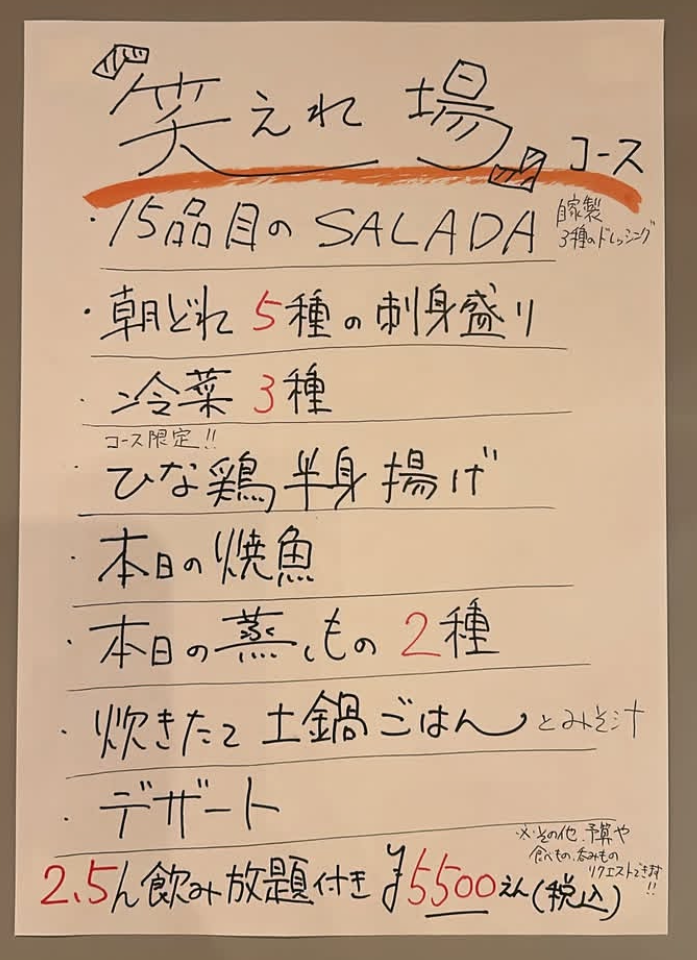 『笑えれ場』コース
・15品目のSALADA 自家製
3種のドレッシング
・朝どれ5種の刺身盛り
・冷菜3種
コース限定!!
・ひな鶏半身揚げ
・本日の焼魚
・本日の蒸しもの2種
・炊きたて土鍋ごはんとみそ汁
・デザート
※その他、予算や
食べもの、呑みもの
リクエストできます!!
2.5h飲み放題付き ¥5500えん(税込)